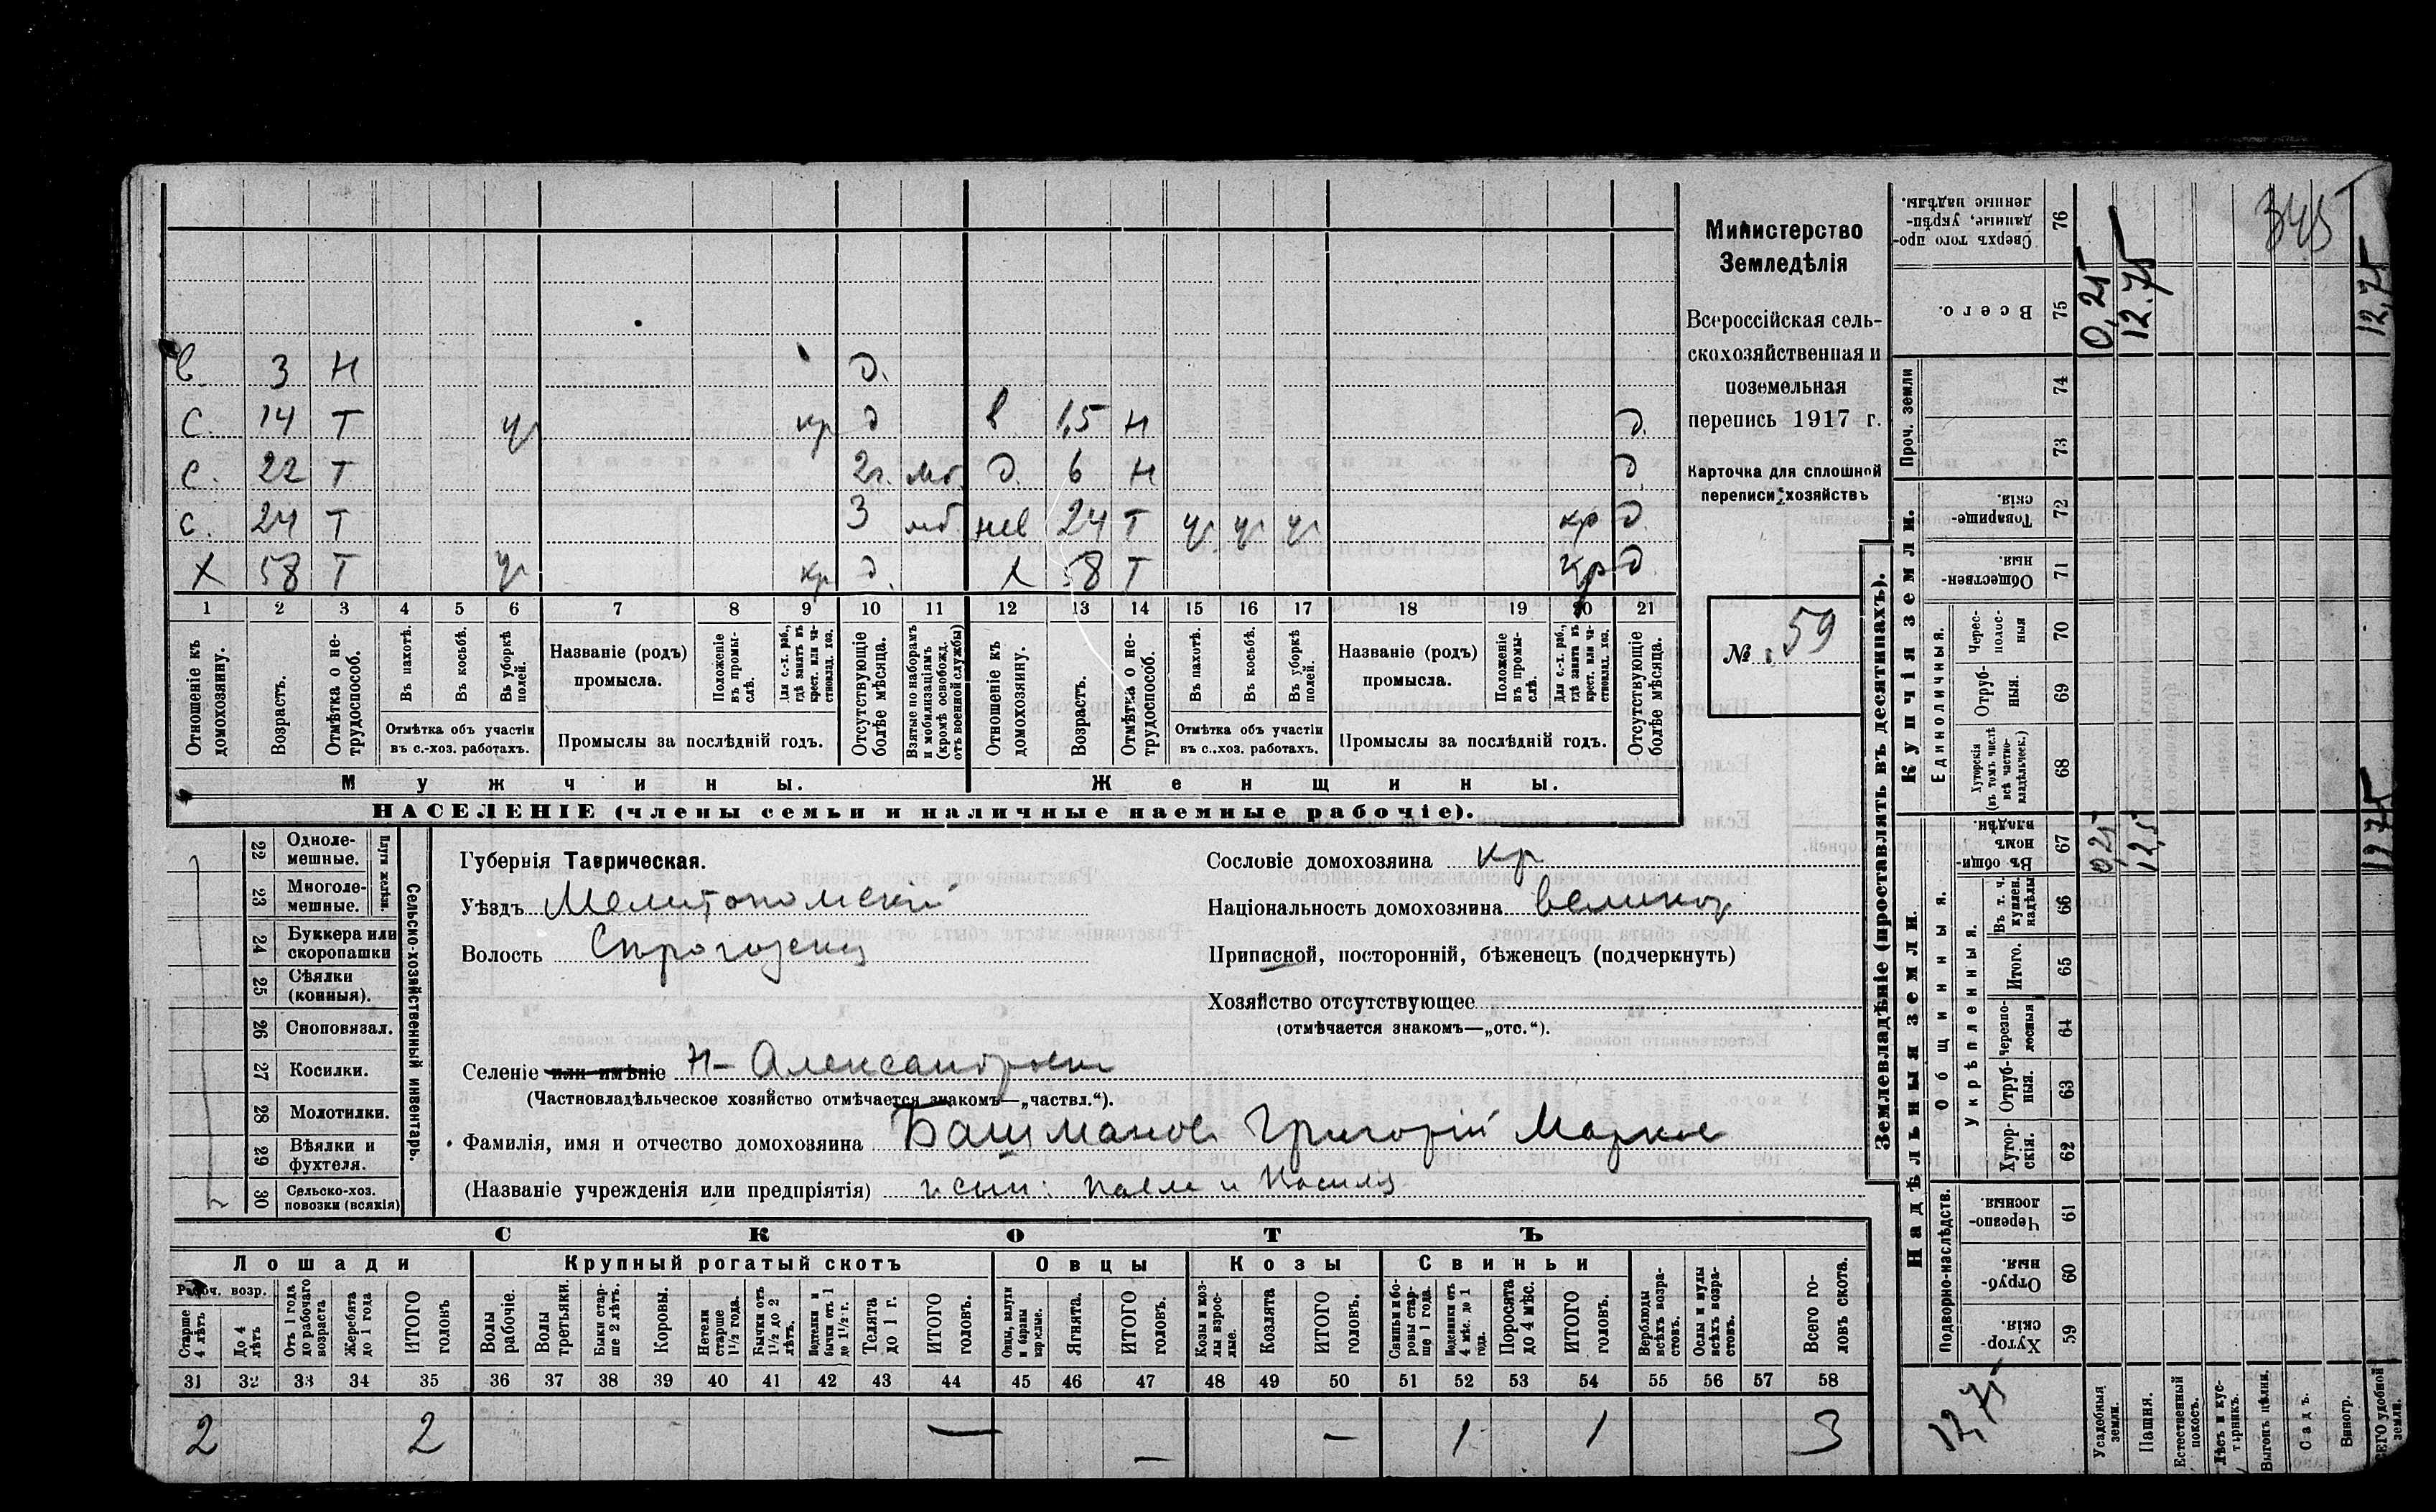 в 3 Н д.
с. 14 Т ч кр д в 1,5 н д.
с. 22 Т 2г. мб. д. 6 н д.
с. 24 Т 3 мб. нев 24 Т ч ч ч кр д.
х 58 Т ч кр д. х 58 Т кр д.
1 2 3 4 5 6 7 8 9 10 11 12 13 14 15 16 17 18 19 20 21
Отношеніе къ домохозяину.
Возрастъ.
Отмѣтка о не-трудоспособ.
Въ пахотѣ.
Въ косьбѣ.
Въ уборкѣ полей.
Отмѣтка объ участіи
въ с.-хоз. работахъ.
Названіе (родъ)
промысла.
Положеніе въ промы-слѣ.
Для с.-х. раб., гдѣ занятъ въ крест. или ча-стновлад. хоз.
Промыслы за послѣдній годъ.
Отсутствующіе болѣе мѣсяца.
Взятые по наборамъ и мобилизаціямъ (кромѣ освобожд. отъ военной службы)
Отношеніе къ домохозяину.
Возрастъ.
Отмѣтка о не-трудоспособ.
Въ пахотѣ.
Въ косьбѣ.
Въ уборкѣ полей.
Отмѣтка объ участіи
въ с..хоз. работахъ.
Названіе (родъ)
промысла.
Положеніе въ промы-слѣ.
Для с.-х. раб., гдѣ занята въ крест. или ча-стновлад. хоз.
Промыслы за послѣдній годъ.
Отсутствующіе болѣе мѣсяца.
Мужчины. Женщины.
НАСЕЛЕНІЕ (члены семьи и наличные наемные рабочіе).
Министерство
Земледѣлія
Всероссійская сель-
скохозяйственная и
поземельная
перепись 1917 г.
Карточка для сплошной
переписи хозяйствъ
№ 59
22 Одноле-мешные.
23 Многоле-мешные.
Плуги желѣзн.
24 Буккера или скоропашки
25 Сѣялки (конныя).
26 Сноповязал.
27 Косилки.
28 Молотилки.
29 Вѣялки и фухтеля.
30 Сельско-хоз. повозки (всякія)
Сельско-хозяйственный инвентарь.
Губернія Таврическая.
Уѣздъ Мелитопольскій
Волость
Селеніе или имѣніе Н-Александровка
(Частновладѣльческое хозяйство отмѣчается знакомъ—„частвл.“).
Фамилія, имя и отчество домохозяина Башманов Григорій Марков
(Названіе учрежденія или предпріятія) и сын: Павел и
Сословіе домохозяина кр
Національность домохозяина великор
Приписной, посторонній, бѣженецъ (подчеркнуть)
Хозяйство отсутствующее
(отмѣчается знакомъ—„отс.“).
СКОТЪ
Лошади Крупный рогатый скотъ Овцы Козы Свиньи
Рабоч. возр.
Старше 4 лѣтъ
До 4 лѣтъ
Отъ 1 года до рабочаго возраста
Жеребята до 1 года
ИТОГО головъ
Волы рабочіе.
Волы третьяки.
Быки стар-ше 2 лѣтъ.
Коровы.
Нетели старше 1½ года.
Бычки отъ 1½ до 2 лѣтъ.
Подтелки и бычки отъ 1 до 1½ г.
Телята до 1 г.
ИТОГО головъ.
Овцы, валухи и бараны взрослые.
Ягнята.
ИТОГО головъ.
Козы и коз-лы взрос-лые.
Козлята
ИТОГО головъ.
Свиньи и бо-ровы стар-ше 1 года.
Подсвинки отъ 4 мѣс. до 1 года.
Поросята до 4 мѣс.
ИТОГО головъ.
Верблюды всѣхъ возра-стовъ.
Ослы и мулы всѣхъ возра-стовъ.
Всего го-ловъ скота.
31 32 33 34 35 36 37 38 39 40 41 42 43 44 45 46 47 48 49 50 51 52 53 54 55 56 57 58
2 2 — — — 1 1 3
Землевладѣніе (проставлять въ десятинахъ).
Сверхъ того про-данные, укрѣп-ленные надѣлы. 76
Всего. 75 0,25 12.75 12,75
345
Проч. земли 74 73
Купчія земли.
Товарище-скія. 72
Обществен-ныя. 71
Единоличныя.
Черес-полос-ныя 70
Отруб-ныя. 69
Хуторскія (въ томъ числѣ всѣ частно-владѣльческ.) 68
Надѣльныя земли.
Общинныя.
Въ общин-номъ владѣн. 67 0,25 12,5 12,75
Укрѣпленныя.
Въ т. ч. куплен. надѣлы 66
Итого. 65
Черезпо-лосныя 64
Отруб-ныя. 63
Хутор-скія. 62
Подворно-наслѣдств.
Черезпо-лосныя. 61
Отруб-ныя. 60
Хутор-скія 59
12,75
Усадебныя земли.
Пашня.
Естественный покосъ.
Лѣсъ и кус-тарникъ.
Выгонъ цѣлин.
Садъ.
Виногр.
ВСЕГО удобной земли.